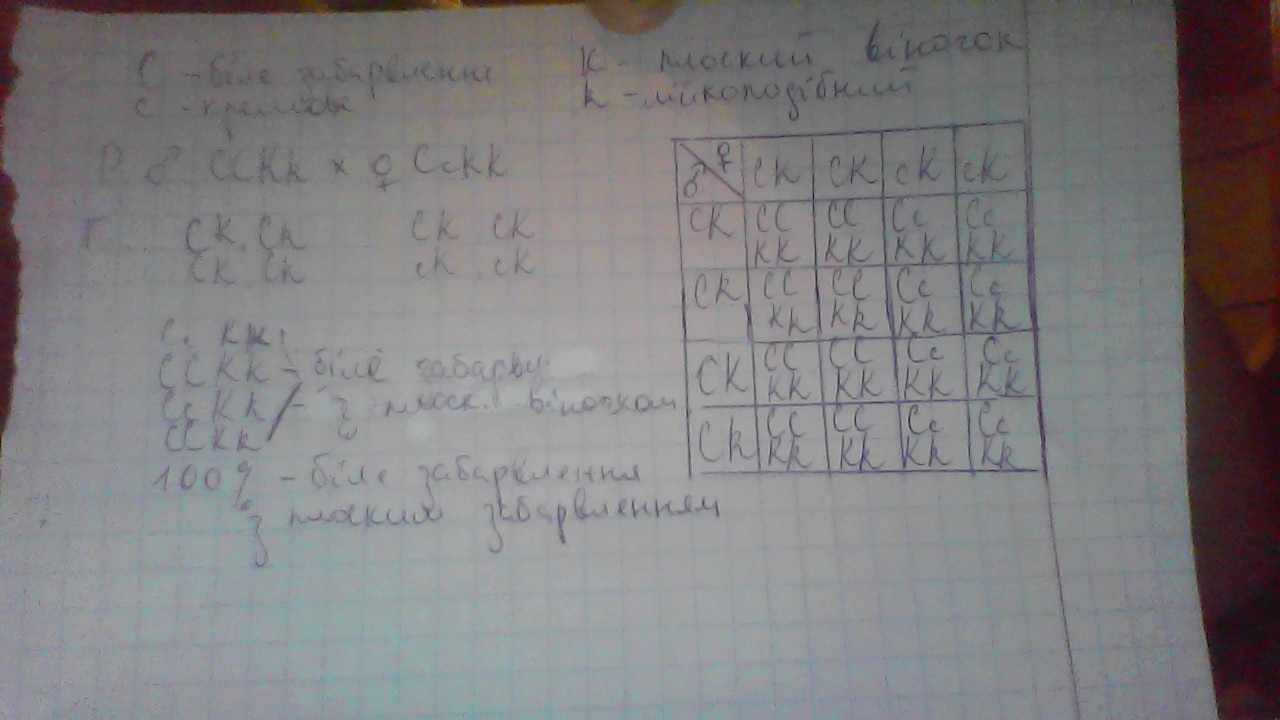 C - біле забарвлення
c - кремове
K - плоский віночок
k - лійкоподібний
P ♂ CCKk × ♀ CcKK
Г CK, Ck CK, CK
CK, Ck cK, cK
♂ ♀ CK CK cK cK
CK CC CC Cc Cc
KK KK KK KK
Ck CC CC Cc Cc
Kk Kk Kk Kk
CK CC CC Cc Cc
KK KK KK KK
Ck CC CC Cc Cc
Kk Kk Kk Kk
CCKK - біле забарв
CcKk - з плоск. віночком
CCKk
100% - біле забарвлення
з плоским забарвленням